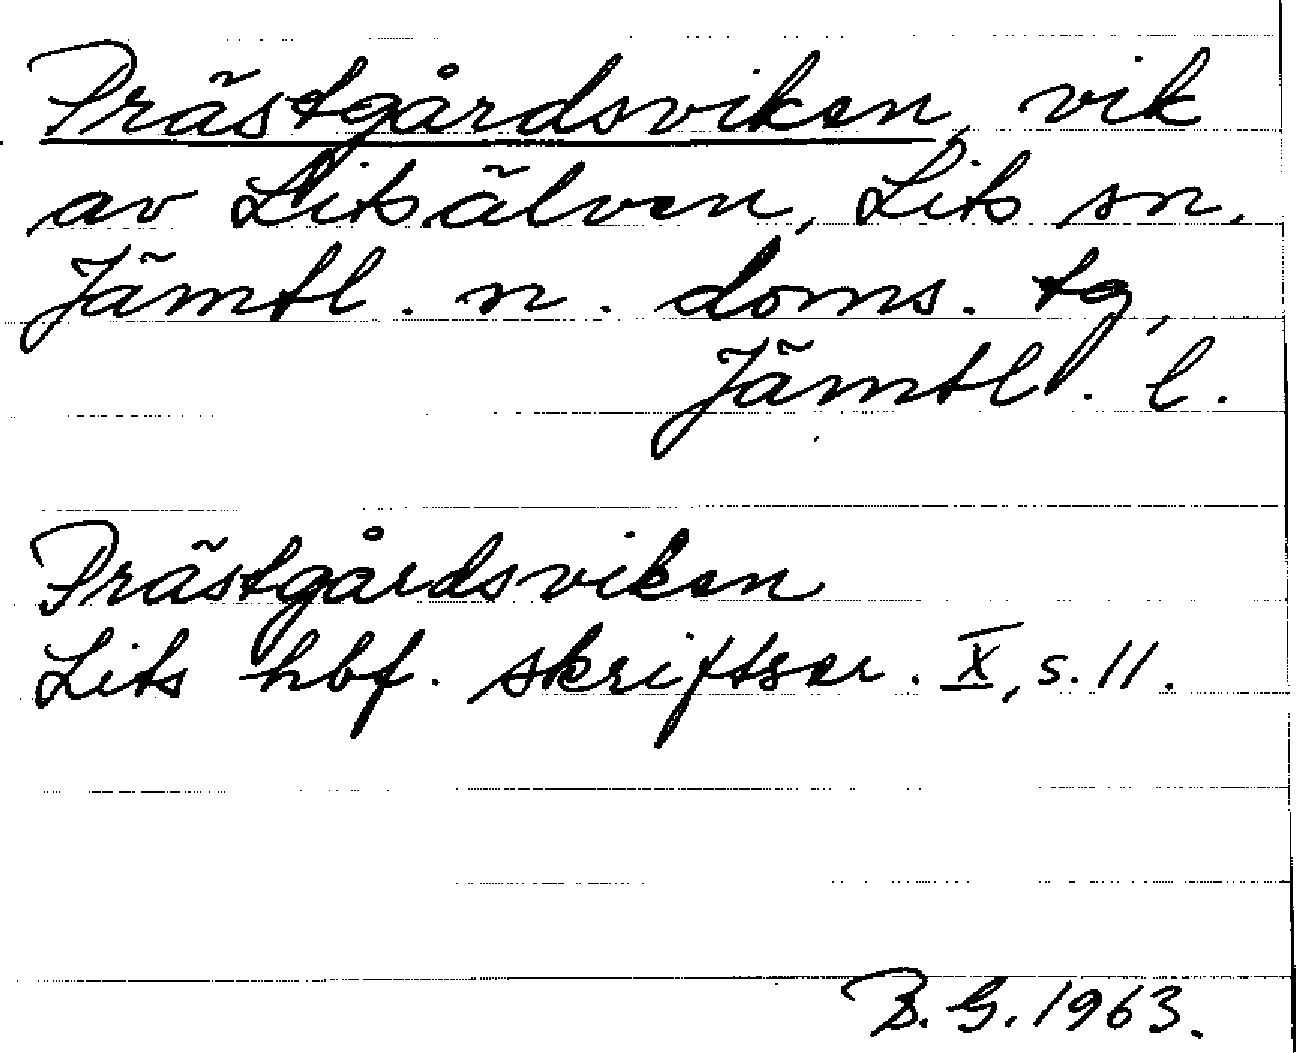 Prästgårdsviken, vik
av Litsälven, Lits sn.
Jämtl. n. doms. tg,
Jämtl. l.
Prästgårdsviken
Lits hbf. skriftser. X, s. 11.
B. G. 1963.